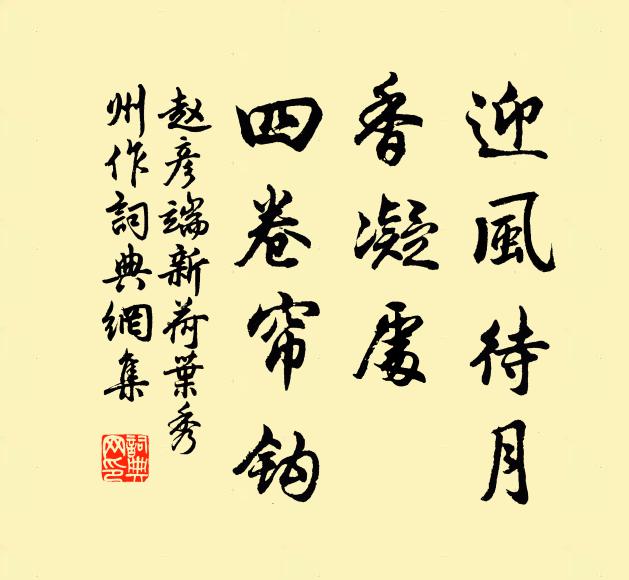 迎風待月
香凝處
四卷帘鈎
赵彥端新荷葉秀
州作詞典網集
詞典
网印